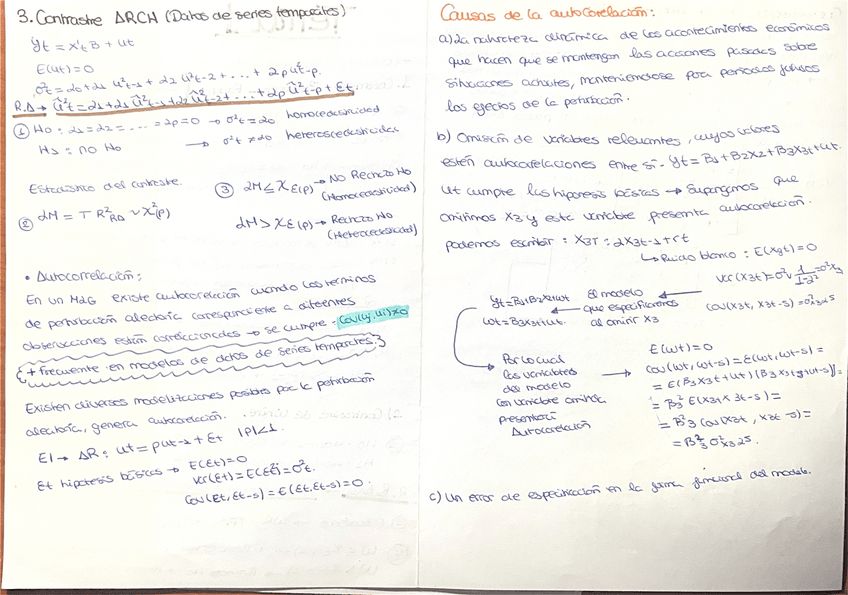 3. Contraste ARCH (Datos de series temporales)
yt = x't B + ut
E(ut) = 0
σ²t = α0 + α1 u²t-1 + α2 u²t-2 + ... + αp u²t-p.
R.A → û²t = α1 + α1 û²t-1 + α2 û²t-2 + ... + αp û²t-p + Et
① H0: α1 = α2 = ... = αp = 0 → σ²t = α0 homocedasticidad
H1: no H0 → σ²t ≠ α0 heteroscedasticidad
Estadístico del contraste.
② λM = T R²RA ~ χ²(p)
③ λM ≤ χE(p) → NO Rechazo H0
(Homocedasticidad)
λM > χE(p) → Rechazo H0
(Heterocedasticidad)
• Autocorrelación:
En un MLG existe autocorrelación cuando los terminos
de perturbación aleatoria correspondiente a diferentes
observaciones están correlacionadas → se cumple - Cov(uj, ui) ≠ 0
{+ frecuente en modelos de datos de series temporales.}
Existen diversas modelizaciones posibles por la perturbación
aleatoria, genera autocorrelación.
El → AR: ut = ρut-1 + Et |ρ|<1.
Et hipotesis básicas → E(Et) = 0
var(Et) = E(Et²) = σ²t.
Cov(Et, Et-s) = E(Et, Et-s) = 0
Causas de la autocorrelación:
a) La naturaleza dinámica de los acontecimientos económicos
que hacen que se mantengan las acciones pasadas sobre
situaciones actuales, manteniendose por periodos
los efectos de la perturbación.
b) Omisión de variables relevantes, cuyos valores
estén autocorrelaciones entre sí - Yt = B1 + B2X2 + B3X3t + ut.
Ut cumple las hipotesis básicas → Supongamos que
omitimos X3 y esta variable presenta autocorrelación.
podemos escribir: X3T = αX3t-1 + rt
↳ Ruido blanco: E(X3t) = 0
Var(X3t) = σ²v 1/1-α² = σ²x3
Cov(X3t, X3t-s) = σ²x3 αs
Yt = B1 + B2X2t + wt
wt = B3X3t + ut.
El modelo
que especificamos
al omitir X3
Por lo cual
las variables
del modelo
con variable omitida
presentará
Autocorrelación
E(wt) = 0
Cov(wt, wt-s) = E(wt, wt-s) =
= E(B3X3t + ut)(B3X3t-s + ut-s) =
= B²3 E(X3t X3t-s) =
= B²3 Cov(X3t, X3t-s) =
= B²3 σ²x3 αs.
c) Un error de especificación en la forma funcional del modelo.